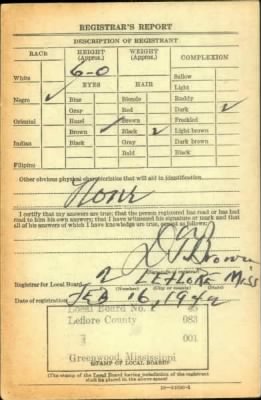 REGISTRAR'S REPORT
DESCRIPTION OF REGISTRANT
RACE HEIGHT (Approx.) WEIGHT (Approx.) COMPLEXION
6-0
White Sallow
EYES HAIR Light
Negro ✓ Blue Blonde Ruddy
Gray Red Dark ✓
Oriental Hazel Brown Freckled
Brown ✓ Black ✓ Light brown
Indian Black Gray Dark brown
Bald Black
Filipino
Other obvious physical characteristics that will aid in identification
None
I certify that my answers are true; that the person registered has read or has had
read to him his own answers; that I have witnessed his signature or mark and that
all of his answers of which I have knowledge are true, except as follows:
Brown
Registrar for Local Board 2 LEFLORE MISS
(Number) (City or county) (State)
Date of registration FEB 16, 1942
Local Board No. 2
Leflore County 083
001
Greenwood, Mississippi
(STAMP OF LOCAL BOARD)
(The stamp of the Local Board having jurisdiction of the registrant
shall be placed in the above space)